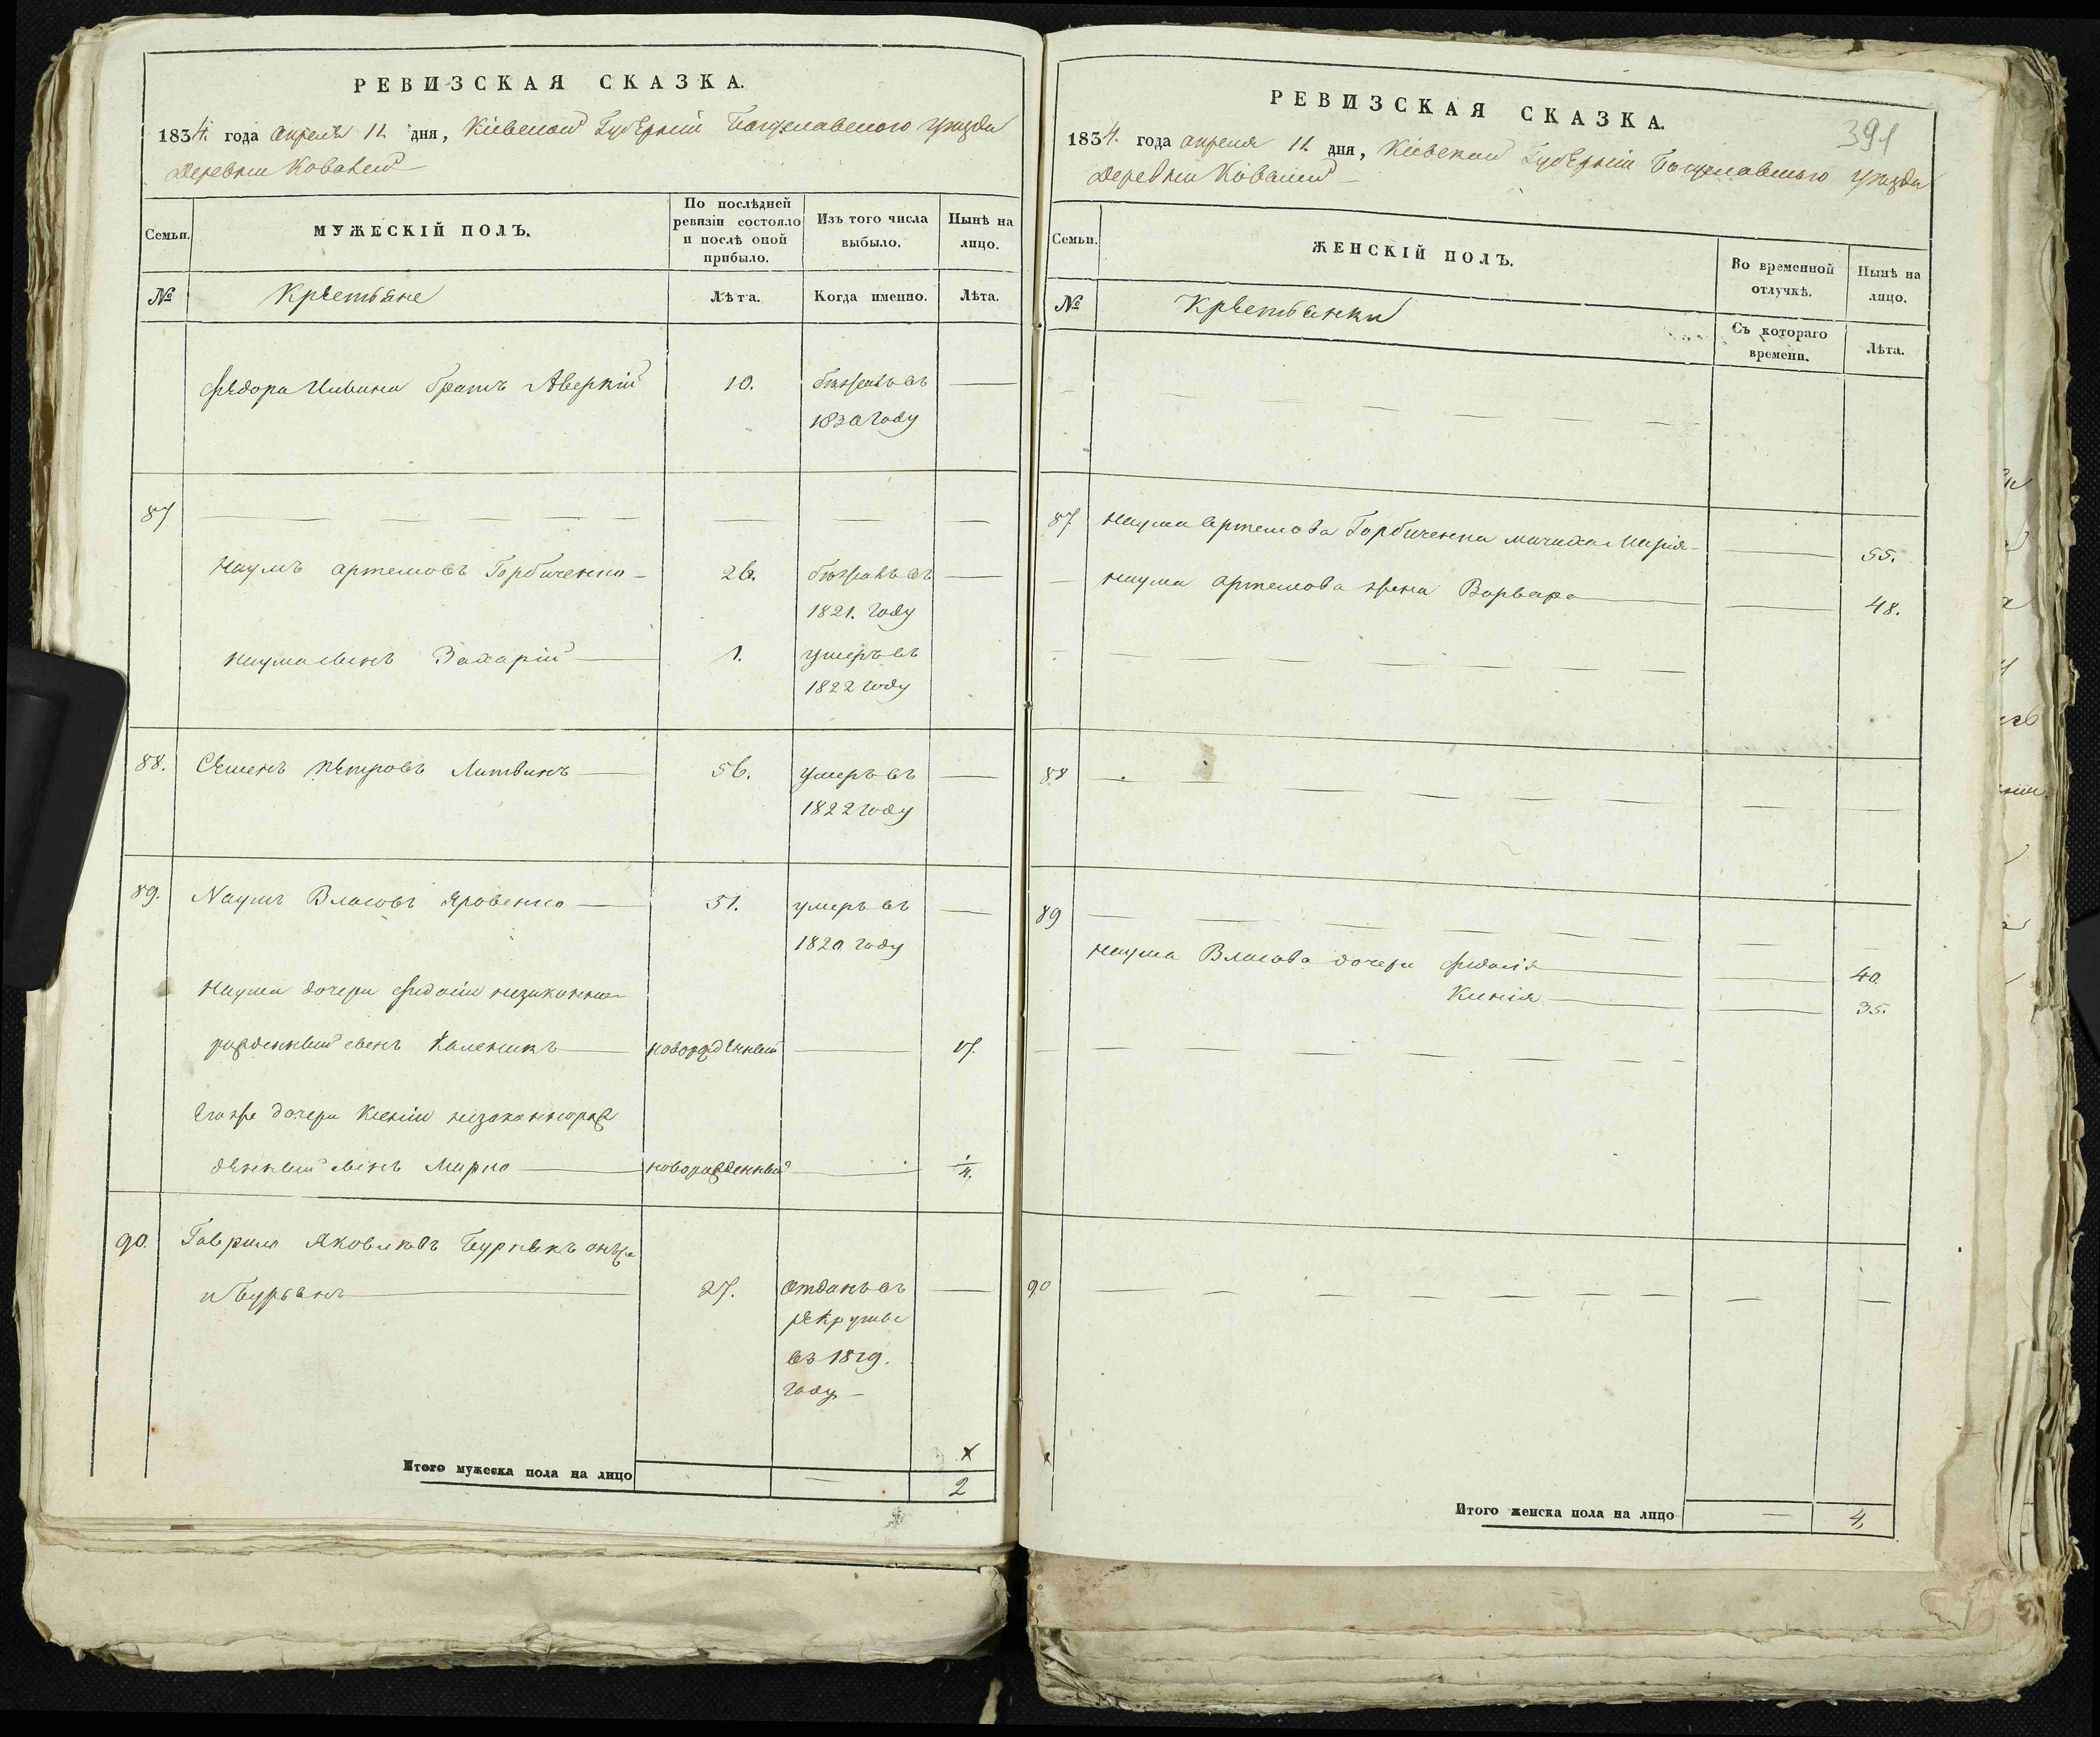 РЕВИЗСКАЯ СКАЗКА.
1834. года апреля 11 дня, Кіевской Губерніи Богуславского уѣзда
Деревни Ковалей
Семьи.
МУЖЕСКІЙ ПОЛЪ.
По послѣдней ревизіи состояло и послѣ оной прибыло.
Изъ того числа выбыло.
Нынѣ на лицо.
№
Крестьяне
Лѣта.
Когда именно.
Лѣта.
Федора братъ Аверкій 10. бѣжалъ въ
1830 году
87
Наумъ Артемовъ Горбиченко 26. бѣжалъ въ
1821. году
Наума сынъ Захарій 1. умеръ въ
1822 году
88. Семенъ Петровъ Литвинъ 56. умеръ въ
1822 году
89. Наумъ Власовъ Яровенко 51. умеръ въ
1820 году
Наума дочери Федосіи незаконно
рожденный сынъ Каленикъ новорожденный 17.
Его же дочери Ксеніи незаконнорож
денный сынъ Марко новорожденный 1/4.
90. Гаврило Яковлевъ онъ же
и Бурьянъ 27. отданъ въ
рекруты
въ 1819.
году
х
Итого мужеска пола на лицо 2
РЕВИЗСКАЯ СКАЗКА.
391
1834. года апреля 11 дня, Кіевской Губерніи Богуславского уѣзда
Деревни Ковалей
Семьи.
ЖЕНСКІЙ ПОЛЪ.
Во временной отлучкѣ.
Нынѣ на лицо.
№
Крестьянки
Съ котораго времени.
Лѣта.
87 Наума Артемова Горбиченка мачиха Марія 55.
Наума Артемова жена Варвара 48.
88
89
Наума Власова дочери Федосія 40.
Ксенія 35.
90
х
Итого женска пола на лицо 4.